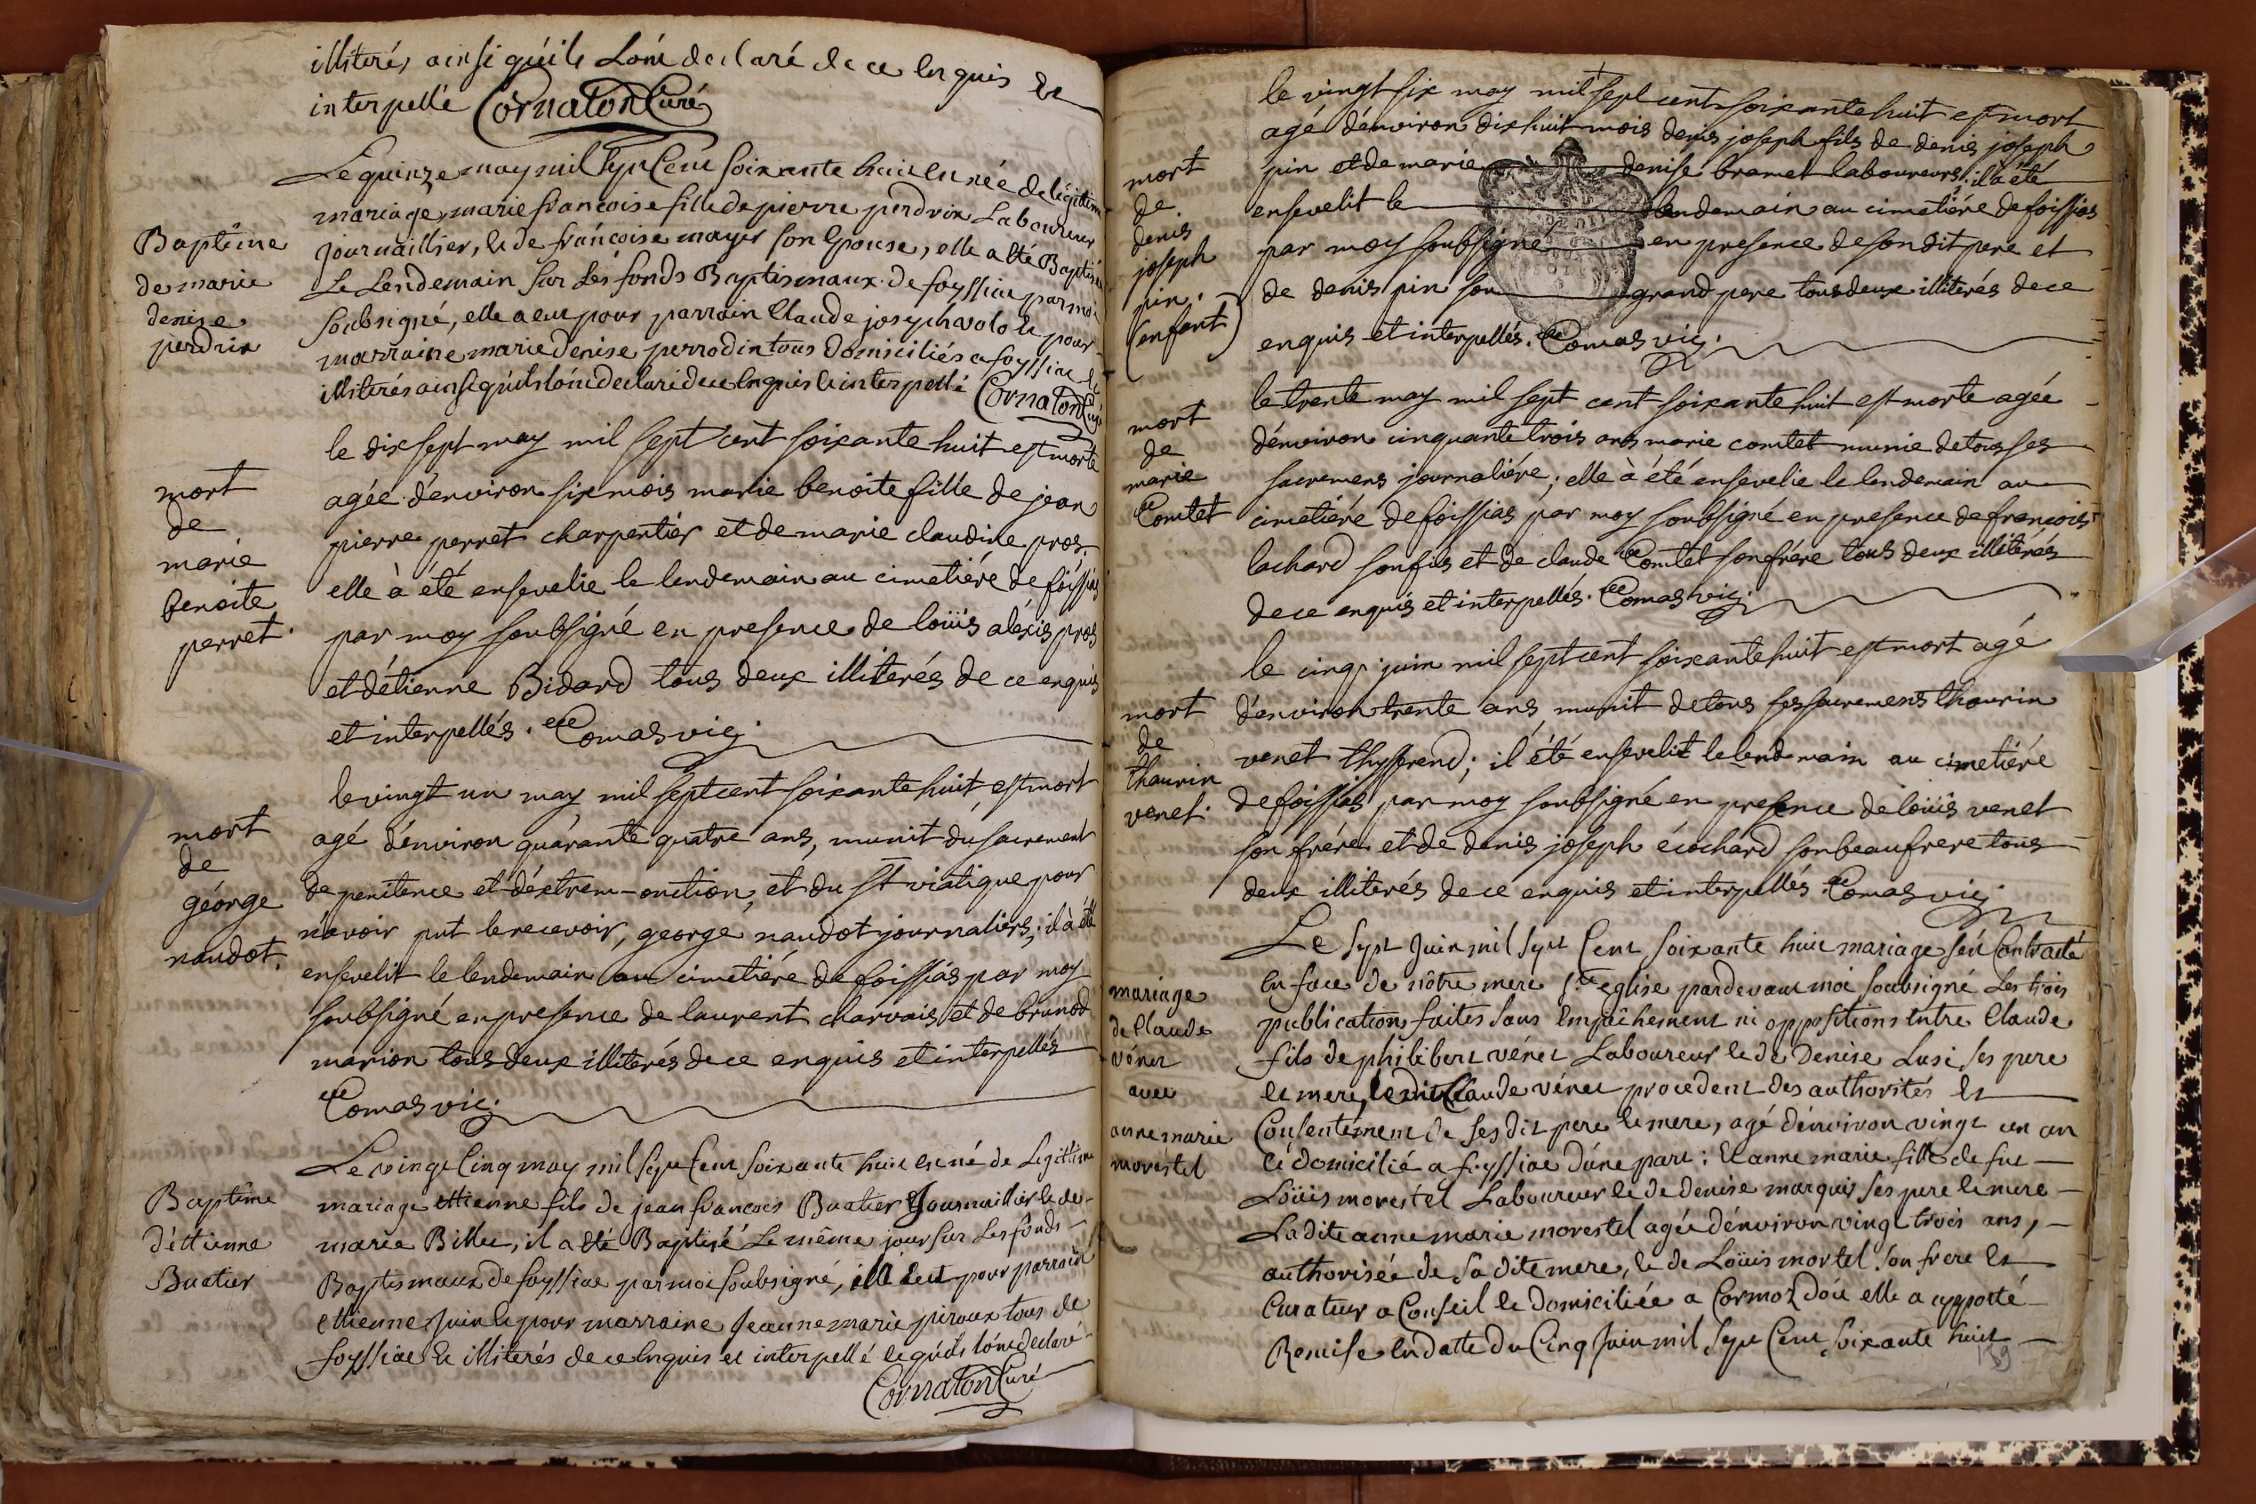 illiterés ainsi qu'ils L'ont declaré de ce Enquis Et
interpellé Cornaton Curé
Le quinze may mil Sept Cent Soixante huit Est née de légitime
mariage, marie francoise fille de pierre perdrix Laboureur
Journaillier, et de francoise mayer son Epouse, elle a été Baptisée
Le Lendemain sur Les fonds Baptismaux de foyssiat par moi
Soubsigné, elle a eu pour parrain Claude joseph et pour
marraine marie denise perrodin tous Domiciliés a foyssiat et
illiterés ainsi qu'ils l'ont declaré de ce Enquis et interpellé Cornaton Curé
Baptême
de marie
denise
perdrix
le dix sept may mil sept cent soixante huit est morte
agée d'environ six mois marie benoite fille de jean
pierre perret charpentier et de marie claudine pros.
elle à été ensevelie le lendemain au cimetiére de foissias
par moy soubsigné en presence de loüis aléxis pros
et d'étienne Bidard tous deux illiterés de ce enquis
et interpellés. Comas vic.
mort
de
marie
benoite
perret.
le vingt un may mil sept cent soixante huit est mort
agé d'environ quarante quatre ans, munit du sacrement
de penitence et d'éxtrem-onction, et du st viatique pour
n'avoir put le recevoir, george naudot journaliers; il à été
ensevelit le lendemain au cimetiére de foissias par moy
soubsigné en presence de laurent charvais et de brunod
marion tous deux illiterés de ce enquis et interpellés
Comas vic.
mort
de
géorge
naudot.
Le vingt Cinq may mil Sept Cent Soixante huit Est né de Legitime
mariage ettienne fils de jean francois Buatier Journaillier et de
marie Billet, il a été Baptisé Le même jour sur Les fonds
Baptismaux de foyssiat par moi soubsigné, ille eut pour parrain
ettienne Juin et pour marraine Jeanne marie piroux tous de
foyssiat et illiterés de ce Enquis et interpellé et qu'ils l'ont declaré
Cornaton Curé
Baptême
d'éttienne
Buatier
le vingt six may mil sept cent soixante huit est mort
agé d'environ dix huit mois denis joseph fils de denis joseph
pin et de marie denise bramet laboureurs; il a été
ensevelit le lendemain au cimetiére de foissias
par moy soubsigné en presence de son dit pere et
de denis pin son grand pere tous deux illiterés de ce
enquis et interpellés. Comas vic.
mort
de
denis
joseph
pin.
(enfant)
le trente may mil sept cent soixante huit est morte agée
d'environ cinquante trois ans marie comtet munie de tous ses
sacremens journaliére; elle à été ensevelie le lendemain au
cimetiére de foissias par moy soubsigné en presence de francois
lachard son fils et de claude Comtet son frére tous deux illiterés
de ce enquis et interpellés. Comas vic.
mort
de
marie
Comtet
le cinq juin mil sept cent soixante huit est mort agé
d'environ trente ans munit de tous ses sacremens thaurin
venet thysserend; il été ensevelit le lendemain au cimetiére
de foissias par moy soubsigné en presence de loüis venet
son frére et de denis joseph écochard son beaufrere tous
deux illiterés de ce enquis et interpellés Comas vic.
mort
de
thaurin
venet.
Le Sept Juin mil Sept Cent Soixante huit mariage s'est Contracté
En face de nôtre mere Ste eglise pardevant moi Soubsigné Les trois
publication faites sans Empêchement ni oppositions Entre Claude
fils de philibert vénet Laboureur et de Denise Lusi ses pere
Et mere, Le dit Claude vénet procedent des authorités Et
Consentement de ses dit pere et mere, agé d'environ vingt un an
Et domicilié a foyssiat d'une part: Et anne marie fille de fut
Loüis morestel Laboureur et de denise marquis ses pere et mere
La dite anne marie morestel agée d'environ vingt trois ans,
authorisée de sa dite mere, et de Loüis mortel son frere Et
Curateur a Conseil et Domiciliée a Cormoz d'où elle a apporté
Remise En datte du Cinq Juin mil Sept Cent Soixante huit
mariage
de Claude
vénet
avec
anne marie
morestel
139